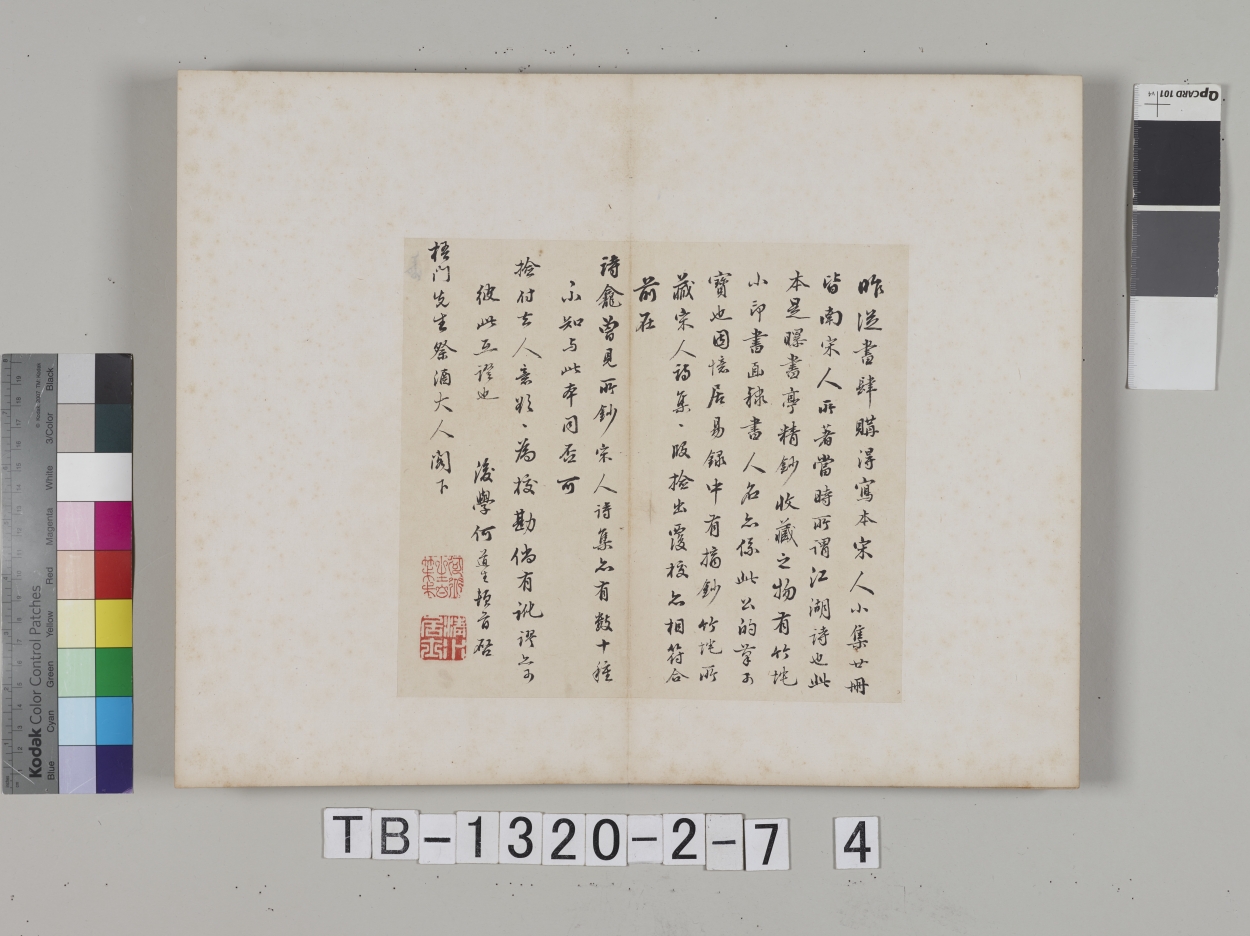 昨從書肆購得寫本宋人小集廿冊
皆南宋人所著當時所謂江湖詩也此
本是曝書亭精鈔收藏之物有竹垞
小印書面隸書人名亦係此公的筆可
寶也因憶居易錄中有摘鈔竹垞所
藏宋人詩集、後撿出覆校亦相符合
前在
詩龕曾見所鈔宋人詩集亦有數十種
不知與此本同否可
撿付去人意欲、為校勘倘有訛謬亦可
彼此互證也 後學何道生頓首啓
梧門先生祭酒大人閣下
TB-1320-2-7 4
Kodak Color Control Patches
© Kodak
Blue Cyan Green Yellow Red Magenta White 3/Color Black
QPCARD 101 v4